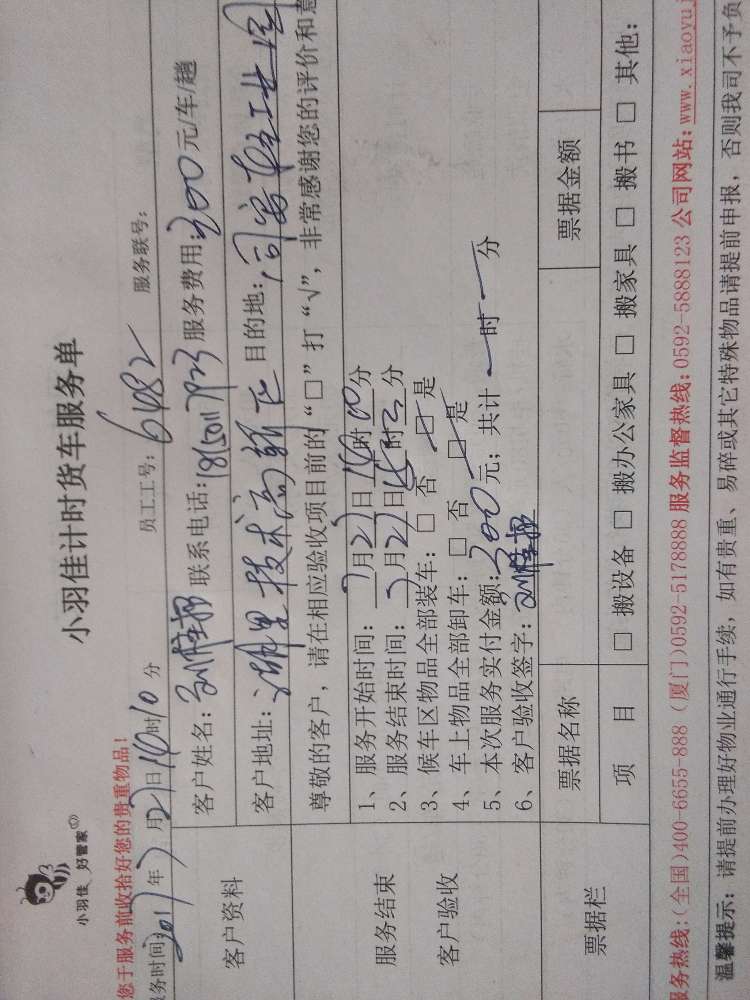 小羽佳 好管家
小羽佳计时货车服务单
您于服务前收拾好您的贵重物品!
服务时间:2017年7月27日14时10分 员工工号:6482 服务联号:
客户资料
客户姓名: 联系电话:18150117923 服务费用:300元/车/趟
客户地址: 技术高新区 目的地:同安 工业园
尊敬的客户,请在相应验收项目前的“□”打“√”,非常感谢您的评价和意
服务结束
客户验收
1、服务开始时间:7月27日14时00分
2、服务结束时间:7月27日 时 分
3、候车区物品全部装车:□ 否 □ 是
4、车上物品全部卸车:□ 否 □ 是
5、本次服务实付金额:300元;共计 一 时 一 分
6、客户验收签字:
票据栏
票据名称 票据金额
项 目 □ 搬设备 □ 搬办公家具 □ 搬家具 □ 搬书 □ 其他:
服务热线:(全国)400-6655-888 (厦门)0592-5178888 服务监督热线:0592-5888123 公司网站:www.xiaoyuj
温馨提示: 请提前办理好物业通行手续,如有贵重、易碎或其它特殊物品请提前申报,否则我司不予负